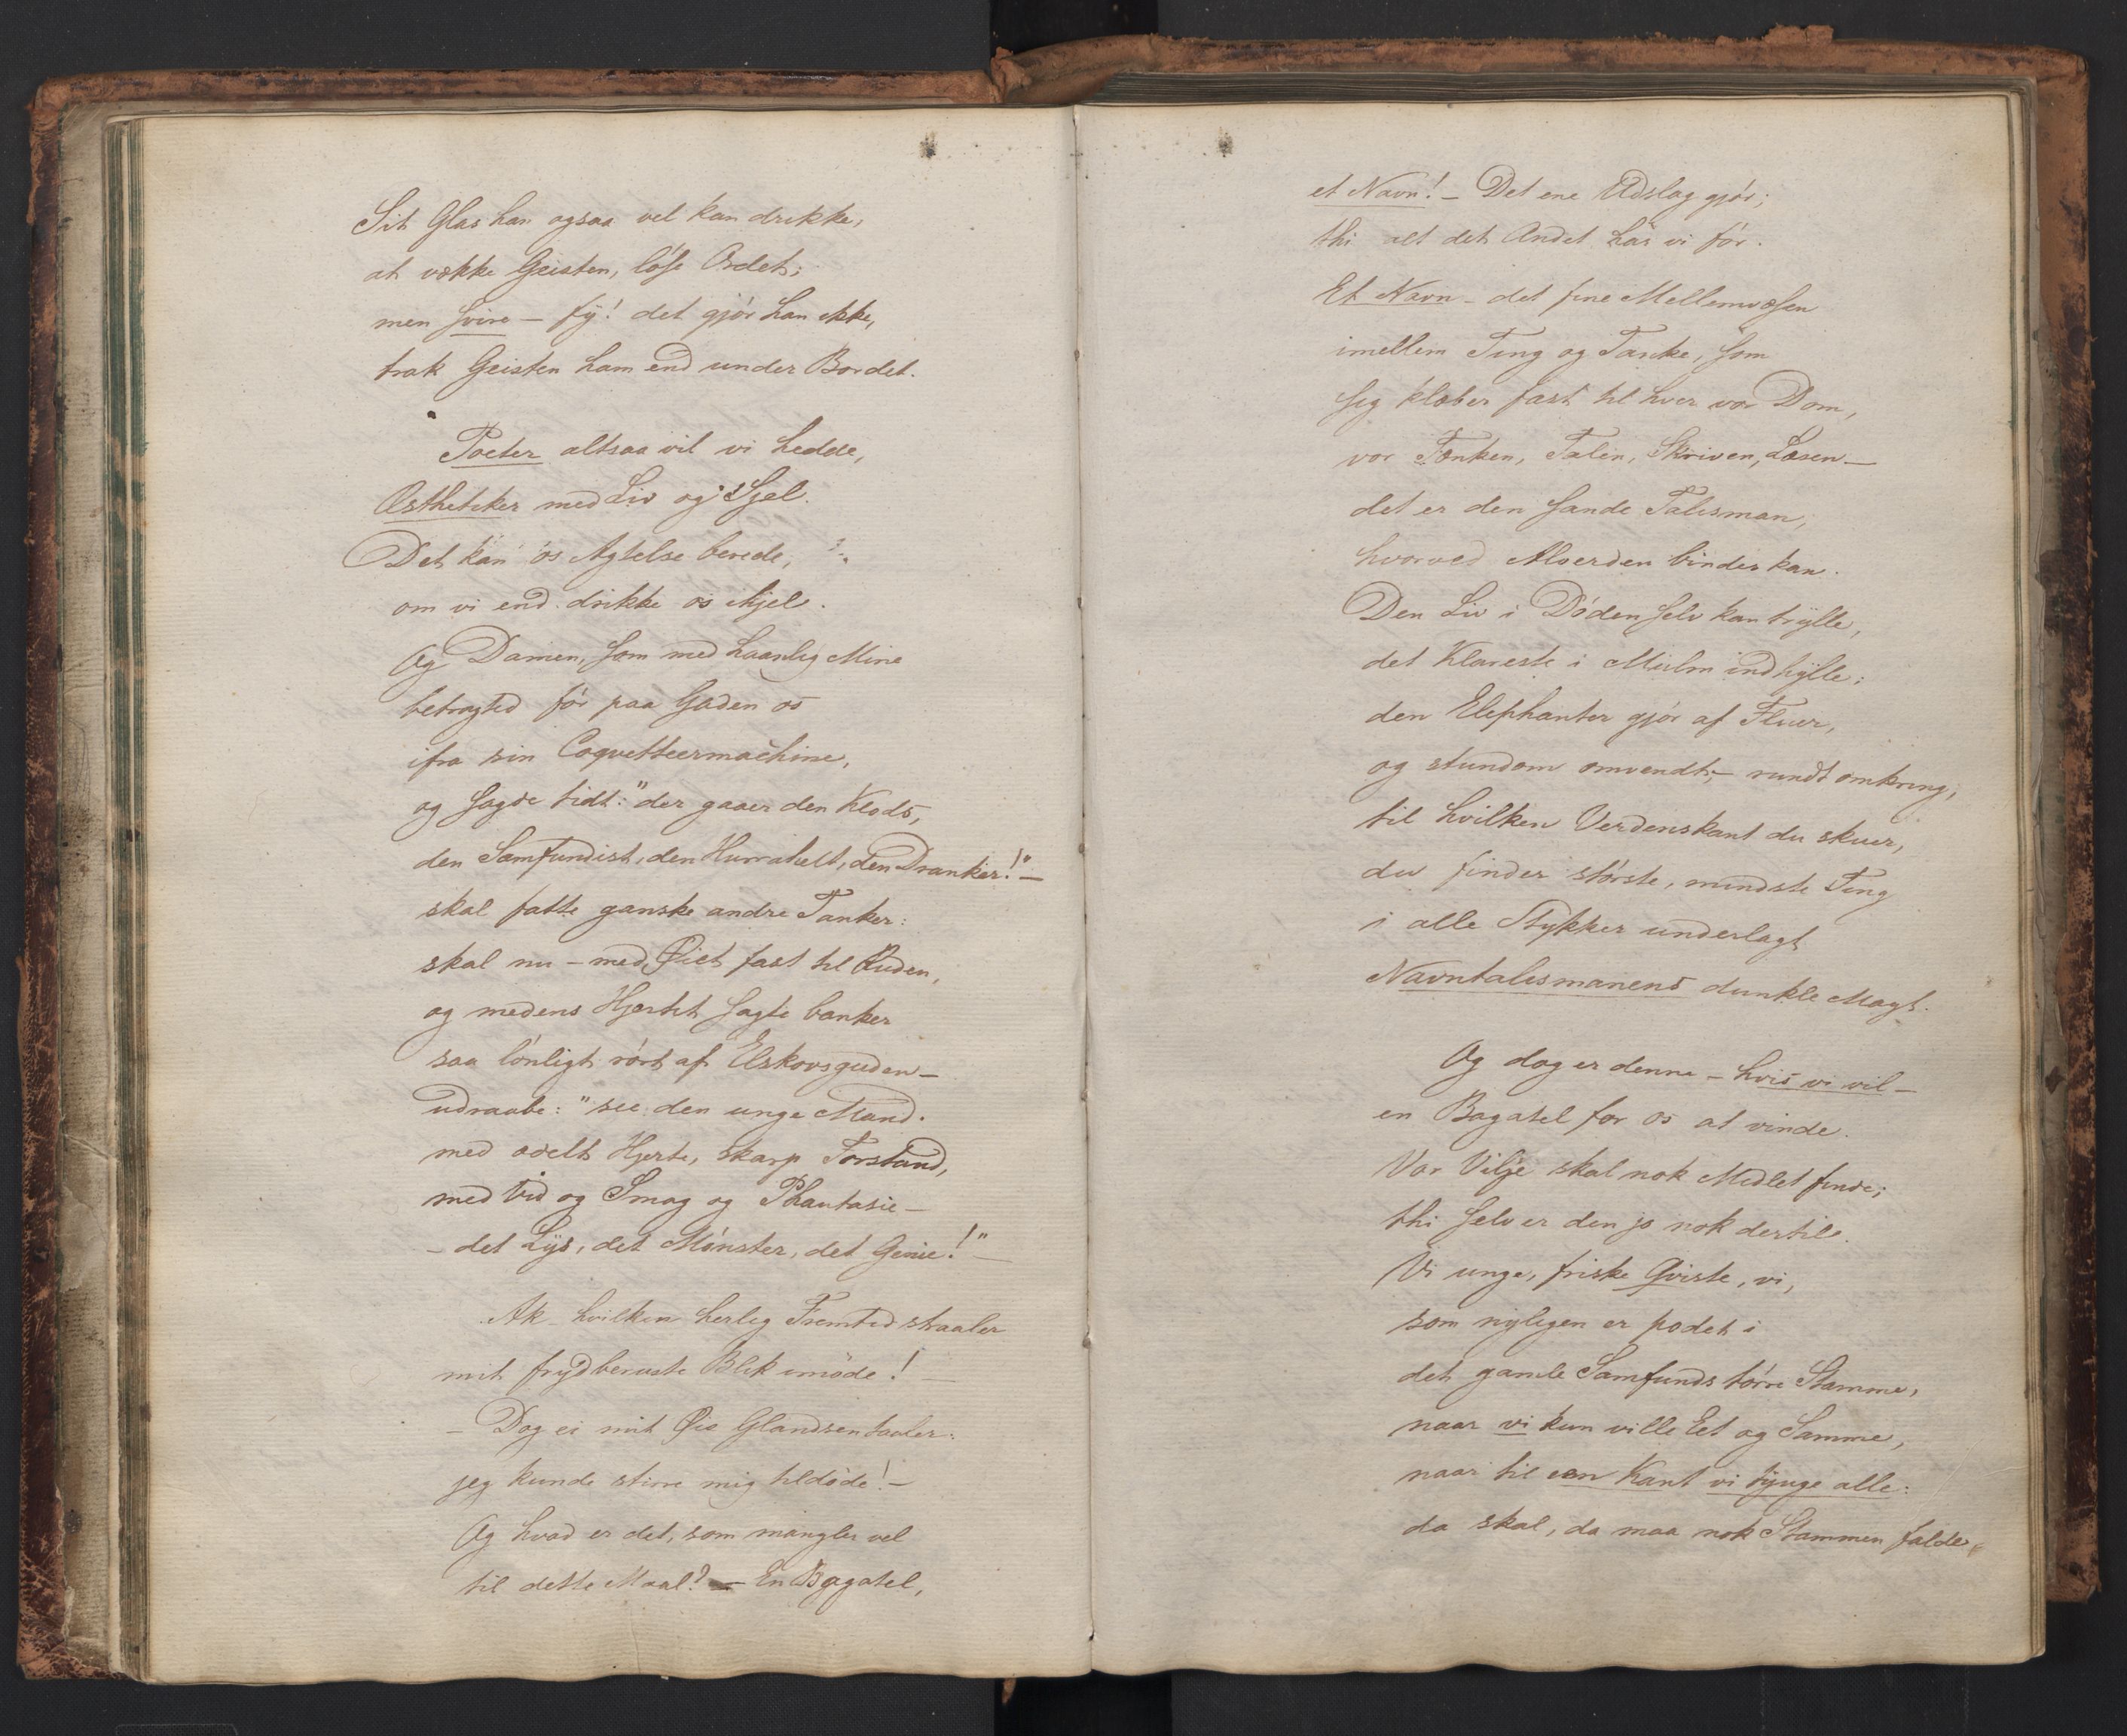 Sit Glas han ogsaa vel kan drikke,
at vække Geisten, løse Ordet;
men svire – fy! det gjør han ikke,
trak Geisten ham end under Bordet.
Poeter altsaa vil vi hedde,
Æsthetiker med Liv og Sjel.
Det kan os Agtelse berede,
om vi end drikke os ihjel.
Og Damen, som med haanlig Mine
betragted før paa Gaden os
ifra sin Coqvetteermachine,
og sagde tidt: "der gaaer den Klods,
den Samfundist, den Hurrahelt, den Dranker!" –
skal fatte ganske andre Tanker:
skal nu – med Øiet fast til Ruden,
og medens Hjertet sagte banker
saa lønligt rørt af Elskovsguden –
udraabe: "see den unge Mand.
med ædelt Hjerte, skarp Forstand,
med Vid og Smag og Phantasie –
– det Lys, det Mønster, det Genie!" –
Ak hvilken herlig Fremtid straaler
mit frydberuste Blik imøde! –
– Dog ei mit Øie Glandsen taaler:
jeg kunde stirre mig tildøde! –
Og hvad er det, som mangler vel
til dette Maal? – En Bagatel,
et Navn! – Det ene Udslag gjør;
thi alt det Andet har vi før.
Et Navn – det fine Mellemvæsen
imellem Ting og Tanke, som
sig klæber fast til hver vor Dom,
vor Tænken, Talen, Skriven, Læsen –
det er den sande Talisman,
hvorved Alverden bindes kan.
Den Liv i Døden selv kan trylle,
det Klareste i Mulm indhylle;
den Elephanter gjør af Fluer,
og stundom omvendt; – rundt omkring,
til hvilken Verdenskant du skuer,
du finder største, mindste Ting
i alle Stykker underlagt
Navntalismanens dunkle Magt.
Og dog er denne – hvis vi vil –
en Bagatel for os at vinde.
Vor Vilje skal nok Midlet finde;
thi selv er den jo nok dertil.
Vi unge, friske Qviste, vi,
som nyligen er podet i
det gamle Samfunds tørre Stamme,
naar vi kun ville Eet og Samme,
naar til een Kant vi tynge alle:
da skal, da maa nok Stammen falde,